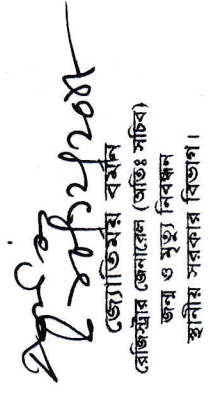 জ্যোতিময় বর্মন
রেজিস্ট্রার জেনারেল (অতিঃ সচিব)
জন্ম ও মৃত্যু নিবন্ধন
স্থানীয় সরকার বিভাগ।